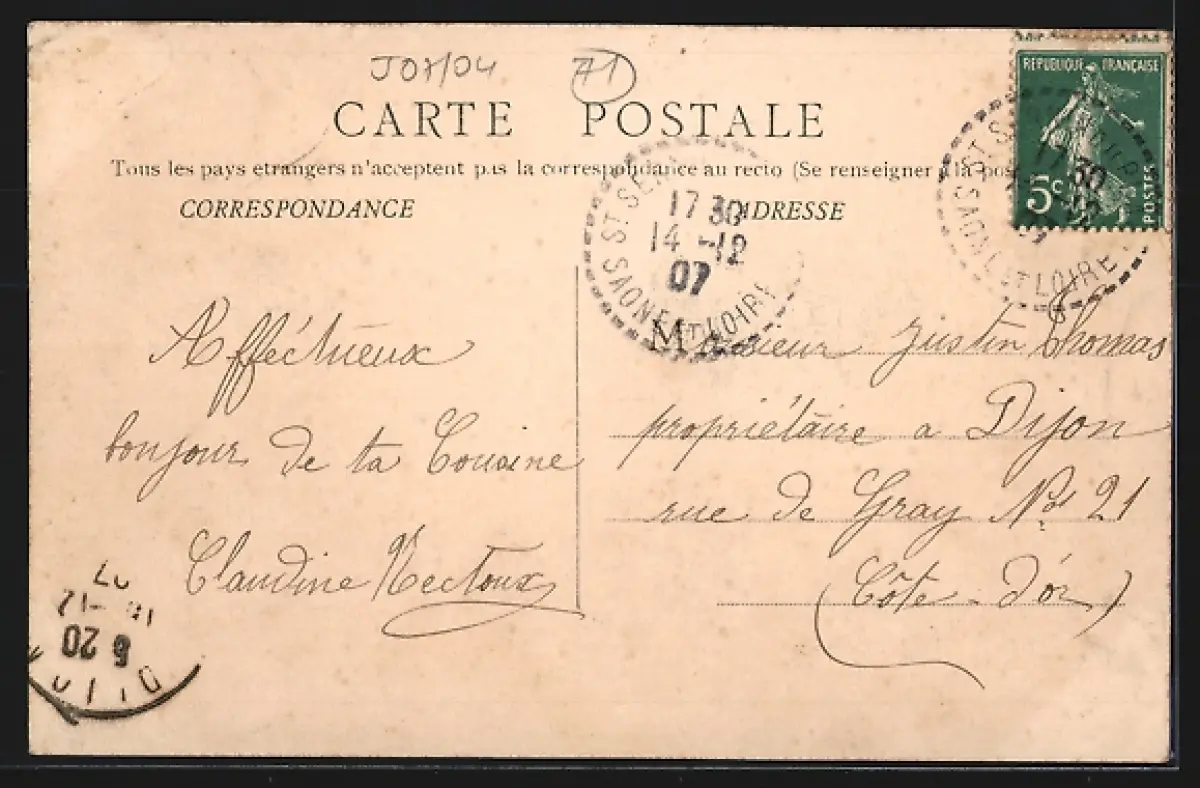 J07/04 71
CARTE POSTALE
Tous les pays etrangers n'acceptent pas la correspondance au recto (Se renseigner à la pos
CORRESPONDANCE
ADRESSE
REPUBLIQUE FRANÇAISE
5c
POSTES
ST SE
17 30
14 -12
07
SAONE ET LOIRE
ST S
SAONE ET LOIRE
Afféctueux
bonjour de ta Cousine
Claudine Nectoux
Monsieur Justin Thomas
propriétaire a Dijon
rue de Gray No 21
(Côte-d'or)
6 20
-12
07
DIJO